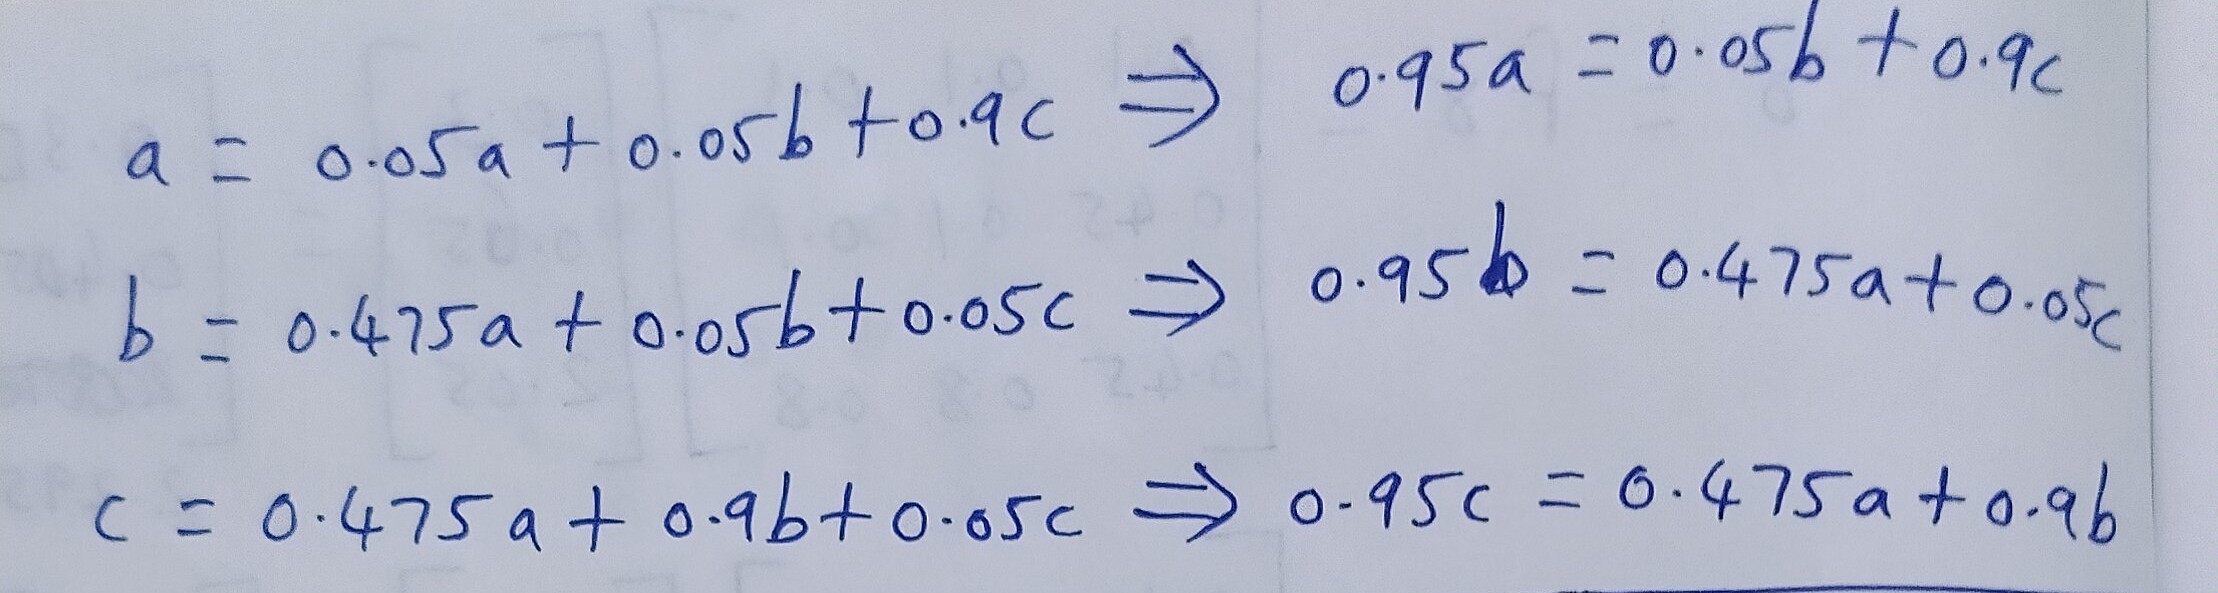 a = 0.05a + 0.05b + 0.9c ⇒ 0.95a = 0.05b + 0.9c
b = 0.475a + 0.05b + 0.05c ⇒ 0.95b = 0.475a + 0.05c
c = 0.475a + 0.9b + 0.05c ⇒ 0.95c = 0.475a + 0.9b